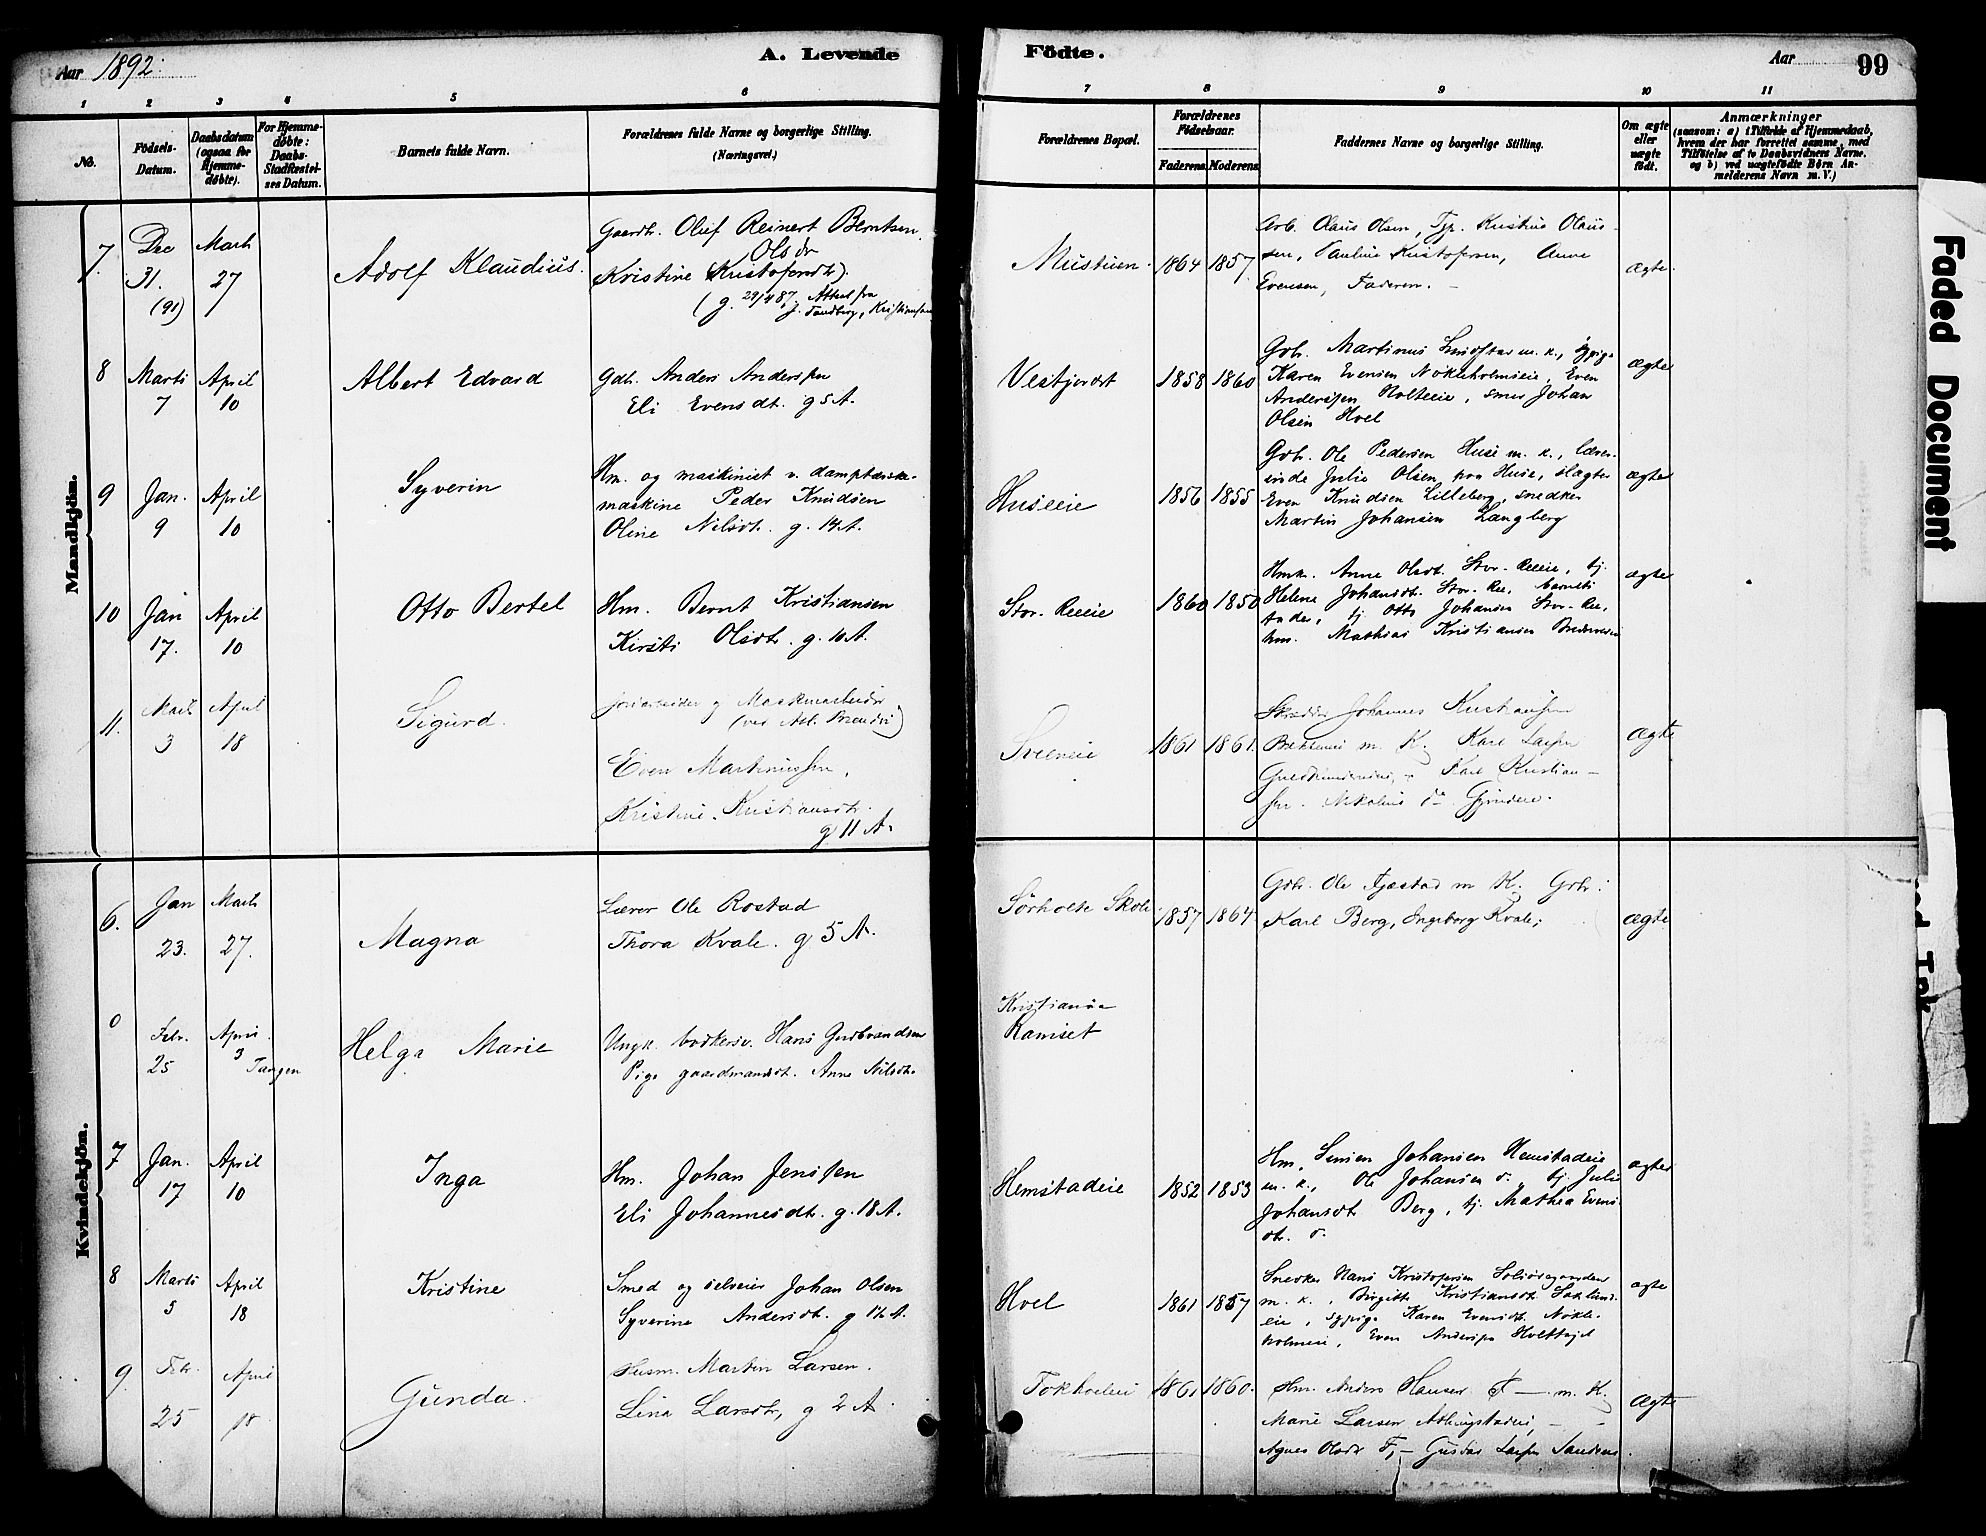 Aar 1892.
A. Levende
Födte.
Aar
99
1 2 3 4 5 6 7 8 9 10 11
No.
Födsels-
Datum.
Daabsdatum
(ogsaa for
Hjemme-
døbte).
For Hjemme-
døbte:
Daabs-
Stadfæstel-
ses Datum.
Barnets fulde Navn.
Forældrenes fulde Navne og borgerlige Stilling.
(Næringsvei.)
Forældrenes Bopæl.
Forældrenes
Födselsaar.
Faderens Moderens
Faddernes Navne og borgerlige Stilling.
Om ægte
eller
uægte
født.
Anmærkninger
(saasom: a) i Tilfælde af Hjemmedaab,
hvem der har forrettet samme, med
Tilföielse af to Daabsvidners Navne,
og b) ved uægtefödte Börn An-
melderens Navn m. V.)
Mandkjön.
7. Dec 31. (91) Marts 27
Adolf Klaudius.
Gaardbr. Oluf Reinert Berntsen,
Olsdr
Kristine (Kristofersdtr).
(g. 29/4 87. Attest fra
Kristiansand
1864 1857.
Arb. Olaus Olsen, Kristine Olaus-
sen, Pauline Kristofersen, Anne
Evensen, Faderen.
ægte
8 Marts 7 April 10
Albert Edvard
Gdb. Anders Andersen
Eli Evensdt. g 5 A.
Vestjordet
1858 1860
Gbr. Martinus m. k.,
Karen Evensen Nökleholmseie, Even
Andersen Holteeie, smed Johan
Olsen Hoel
ægte
9 Jan. 9 April 10
Syverin
Hm. og maskinist v. damptærske-
maskine Peder Knudsen
Oline Nilsdt. g. 14 A.
Huseeie
1856 1855
Gbr. Ole Pedersen Huse m. k., lærer-
inde Julie Olsen, paa Huse, slagter
Even Knudsen Lilleberg, snedker
Martin Johansen Langberg
ægte
10 Jan 17. April 10
Otto Bertel
Hm. Bernt Kristiansen
Kirsti Olsdtr. g. 10 A.
Stor-Reeie
1860 1850
Hmk. Anne Olsdt. Stor-Reeie, tj.
Helene Johansdt. Stor-Ree, barnets
fader, tj. Otto Johansen Stor-Ree,
hm. Mathias Kristiansen
ægte
11. Marts 3 April 18
Sigurd.
Jordarbeider og Maskinarbeider
Even Martiniussen,
Kristine Kristiansdtr.
g 11 A.
Sveneie
1861 1861.
Skrædder Johannes Kristiansen
m. K. Karl Larsen
Karl Kristian-
sen. Nikoline
ægte
Kvindekjön.
6. Jan 23. Marts 27.
Magna
Lærer Ole Rostad
Thora Kvale. g 5 A.
Sörholte Skole
1857 1864
Gbr. Ole Fjæstad m K. Gbr:
Karl Berg, Ingeborg Kvale;
ægte
0 Febr. 25 April 3 Tangen
Helga Marie
Ungk. bødkersv. Hans Gudbrandsen
Pige gaardmandsdt. Anne Nilsdt.
Kristiania
Ramset
7 Jan. 17 April 10
Inga
Hm. Johan Jensen
Eli Johannesdt. g. 18 A.
Hemstadeie
1852 1853
Hm. Simen Johansen Hemstadeie
m. k., Ole Johansen tj. Julie
Johansdtr Berg, tj. Mathea Evens-
dtr.
ægte
8 Marts 3 April 18
Kristine
Smed og selveier Johan Olsen
Syverine Andersdt. g 12 A.
Hoel
1861 1857
Snedker Hans Kristofersen
m. k., Birgitte Kristiansdt.
eie, sypige Karen Evensdt. Nökle-
holmeie, Even Andersen
ægte
9. Febr. 25 April 18
Gunda.
Husm. Martin Larsen.
Lina Larsdtr, g 2 A.
1861 1860.
Hm. Anders Hansen m. K.
Marie Larsen
Agnes Olsdtr Gustav Larsen
ægte
Faded Document